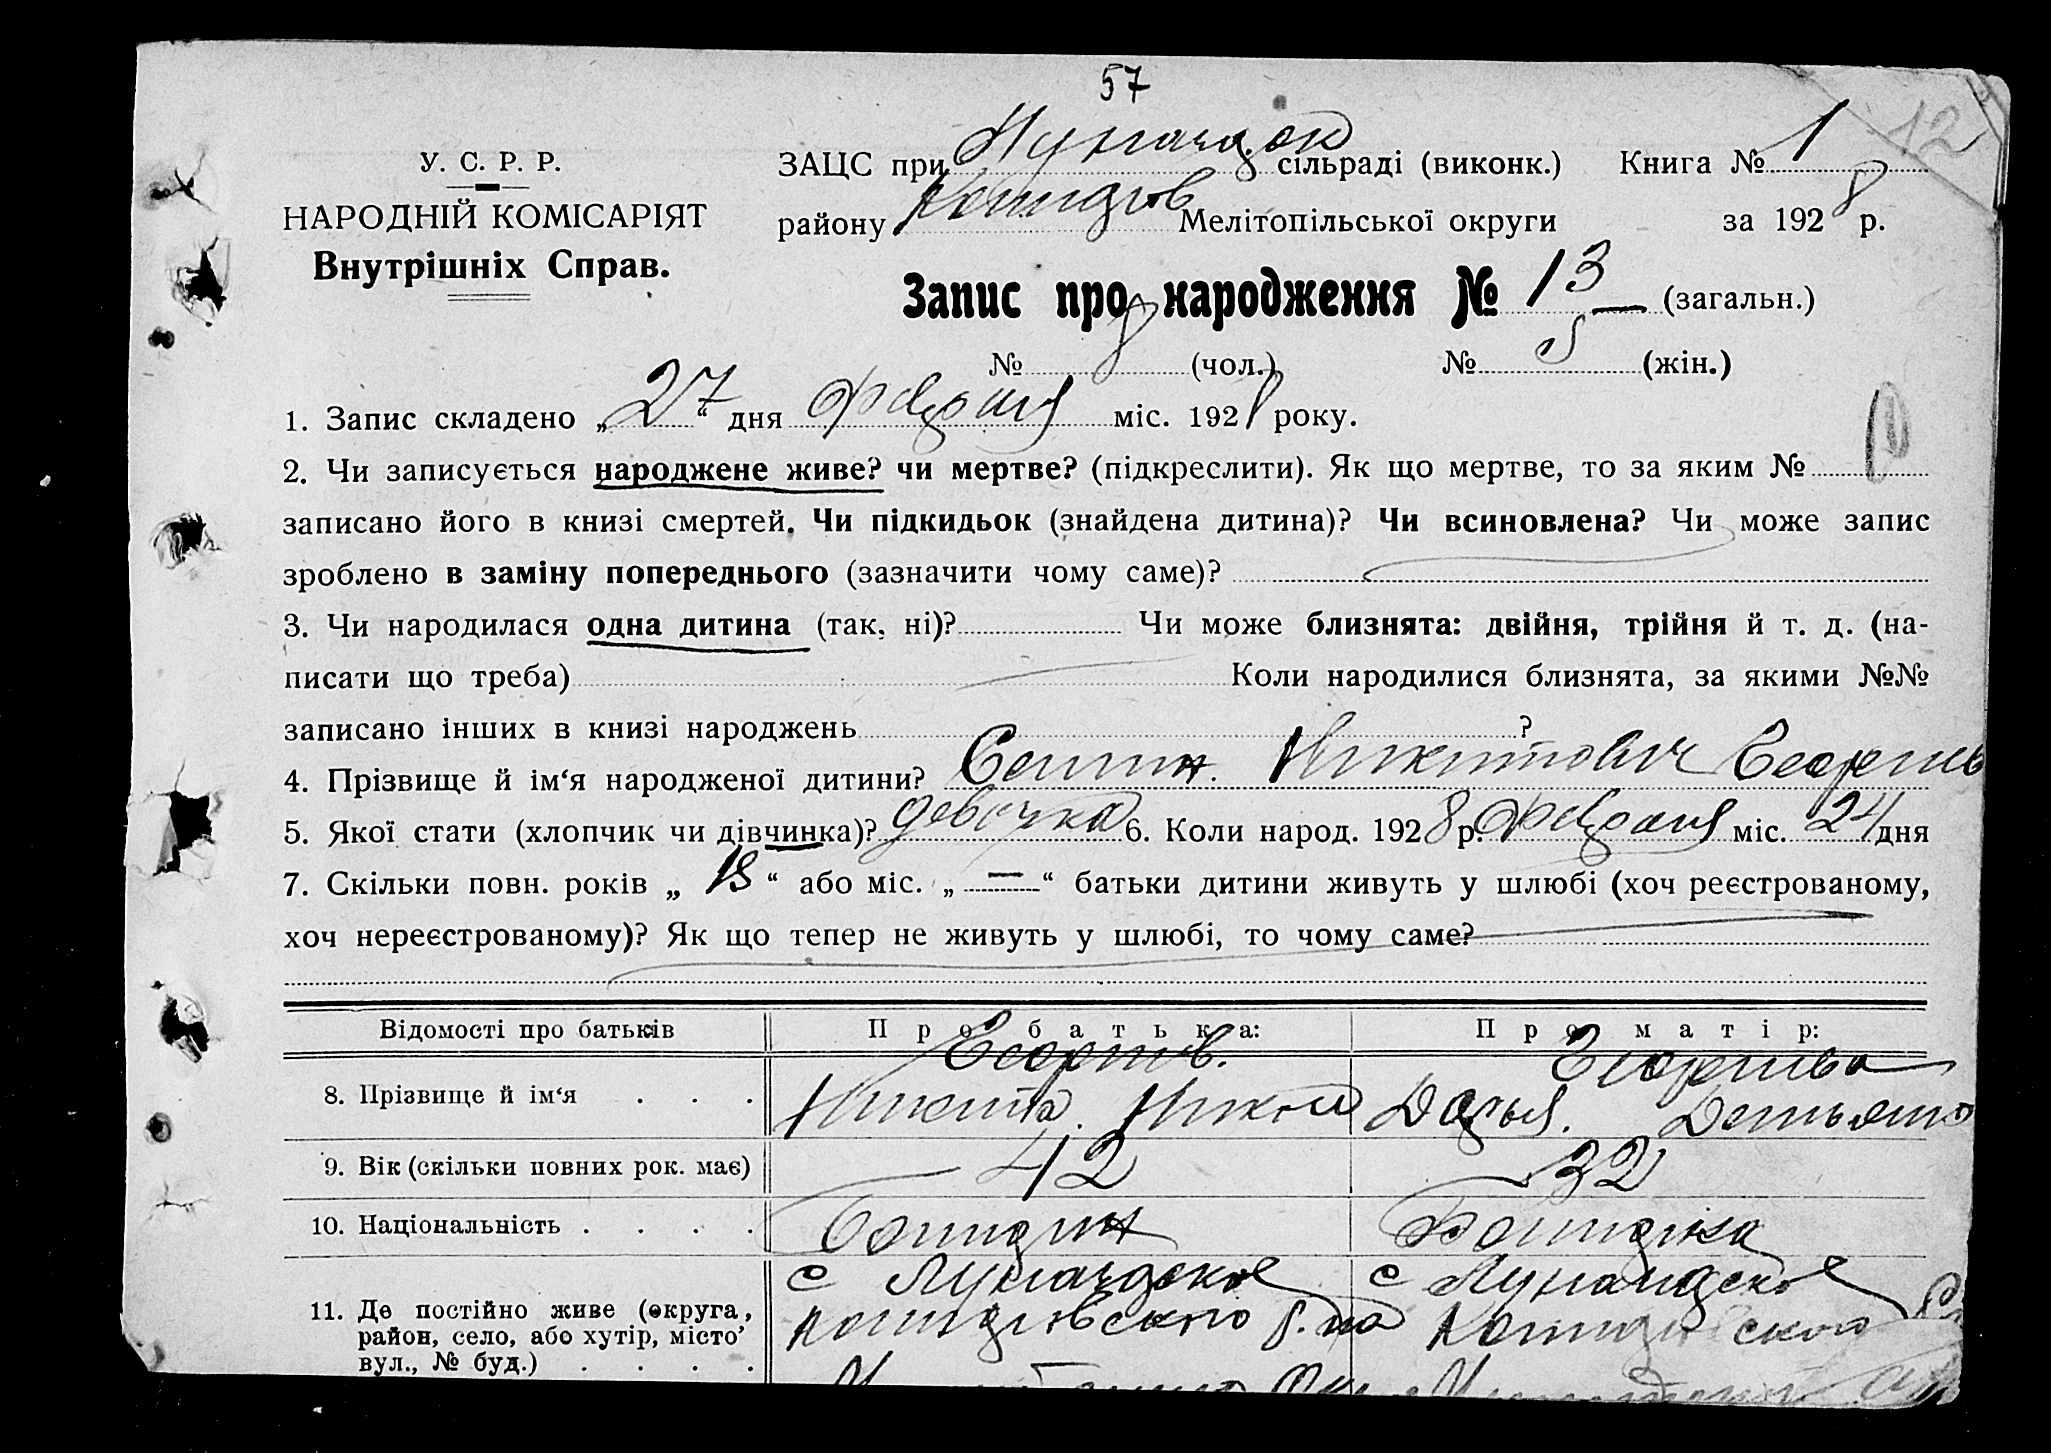 57
12
У. С. Р. Р.
НАРОДНІЙ КОМІСАРІЯТ
Внутрішніх Справ.
ЗАЦС при сільраді (виконк.) Книга № 1
району Мелітопільської округи за 1928 р.
Запис про народження № 13 (загальн.)
№ 8 (чол.) № 5 (жін.)
1. Запис складено „27“ дня Февраля міс. 1928 року.
2. Чи записується народжене живе? чи мертве? (підкреслити). Як що мертве, то за яким №
записано його в книзі смертей. Чи підкидьок (знайдена дитина)? Чи всиновлена? Чи може запис
зроблено в заміну попереднього (зазначити чому саме)?
3. Чи народилася одна дитина (так, ні)? Чи може близнята: двійня, трійня й т. д. (на-
писати що треба) Коли народилися близнята, за якими №№
записано інших в книзі народжень ?
4. Прізвище й ім‘я народженої дитини? Никитович
5. Якої стати (хлопчик чи дівчинка)? девочка 6. Коли народ. 1928 р. Февраля міс. 24 дня
7. Скільки повн. років „ 13 “ або міс. „ — “ батьки дитини живуть у шлюбі (хоч реєстрованому,
хоч нереєстрованому)? Як що тепер не живуть у шлюбі, то чому саме?
Відомості про батьків Про батька: Про матір:
Георгив. Георгиева
8. Прізвище й ім‘я . . . Никита. Дарья.
9. Вік (скільки повних рок. має) 42 32
10. Національність . . . .
с с
11. Де постійно живе (округа,
район, село, або хутір, місто’
вул., № буд.) . . . .